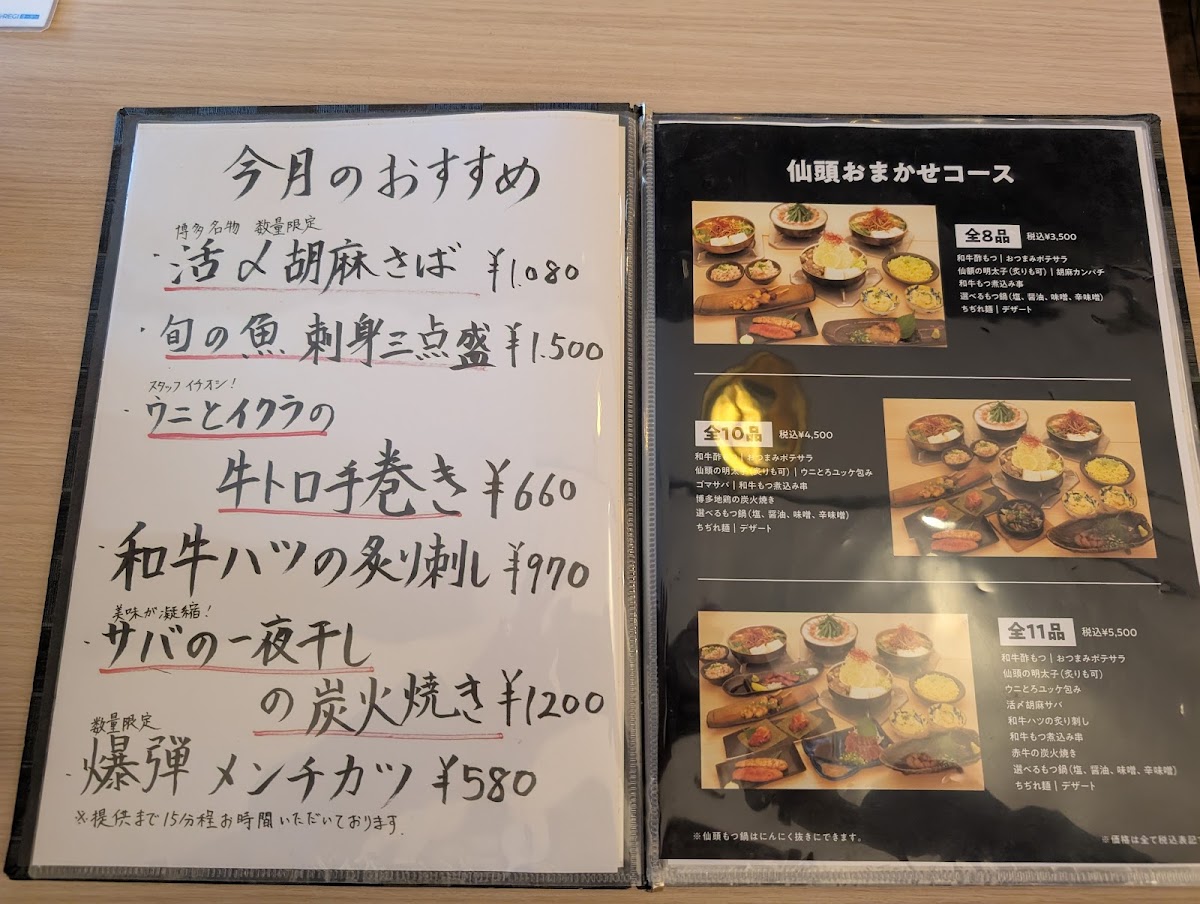 今月のおすすめ
博多名物 数量限定
・活〆胡麻さば ¥1.080
・旬の魚 刺身三点盛 ¥1.500
スタッフイチオシ!
・ウニとイクラの
牛トロ手巻き ¥660
・和牛ハツの炙り刺し ¥970
美味が凝縮!
・サバの一夜干し
の炭火焼き ¥1200
数量限定
・爆弾メンチカツ ¥580
※提供まで15分程お時間いただいております.
仙頭おまかせコース
全8品 税込¥3,500
和牛酢もつ|おつまみポテサラ
仙頭の明太子(炙りも可)|胡麻カンパチ
和牛もつ煮込み串
選べるもつ鍋(塩、醤油、味噌、辛味噌)
ちぢれ麺|デザート
全10品 税込¥4,500
和牛酢もつ|おつまみポテサラ
仙頭の明太子(炙りも可)|ウニとろユッケ包み
ゴマサバ|和牛もつ煮込み串
博多地鶏の炭火焼き
選べるもつ鍋(塩、醤油、味噌、辛味噌)
ちぢれ麺|デザート
全11品 税込¥5,500
和牛酢もつ|おつまみポテサラ
仙頭の明太子(炙りも可)
ウニとろユッケ包み
活〆胡麻サバ
和牛ハツの炙り刺し
和牛もつ煮込み串
赤牛の炭火焼き
選べるもつ鍋(塩、醤油、味噌、辛味噌)
ちぢれ麺|デザート
※仙頭もつ鍋はにんにく抜きにできます。
※価格は全て税込表記